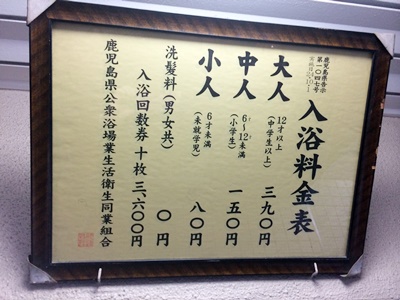 鹿児島県告示
第一〇四七号
入浴料金表
大人 12才以上（中学生以上） 三九〇円
中人 6〜12未満（小学生） 一五〇円
小人 6才未満（未就学児） 八〇円
洗髪料（男女共） 〇円
入浴回数券 十枚 三、六〇〇円
鹿児島県公衆浴場業生活衛生同業組合